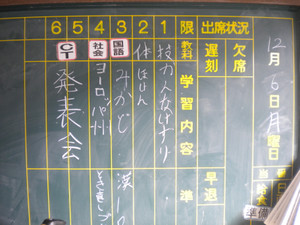 12月6日月曜日
出席状況
欠席
遅刻
早退
限 教科 学習内容 準
1 技 かんなけずり
2 体 ほけん
3 国語 みかど 漢
4 社会 ヨーロッパ州
5 CT 発表会
6
準備